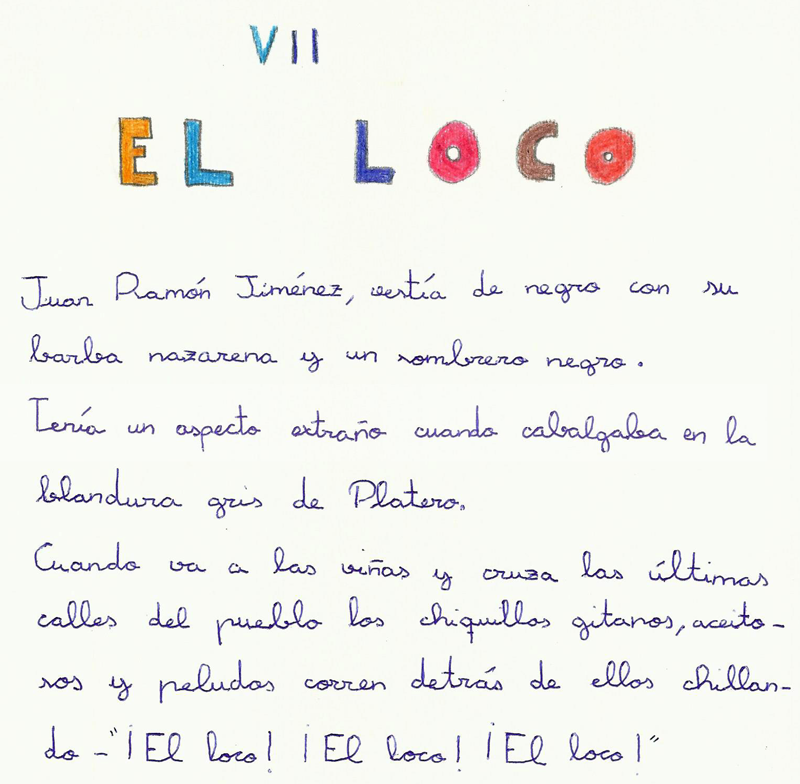 VII
EL LOCO
Juan Ramón Jiménez, vestía de negro con su
barba nazarena y un sombrero negro.
Tenía un aspecto extraño cuando cabalgaba en la
blandura gris de Platero.
Cuando va a las viñas y cruza las últimas
calles del pueblo los chiquillos gitanos, aceito-
sos y peludos corren detrás de ellos chillan-
do -"¡El loco! ¡El loco! ¡El loco!"